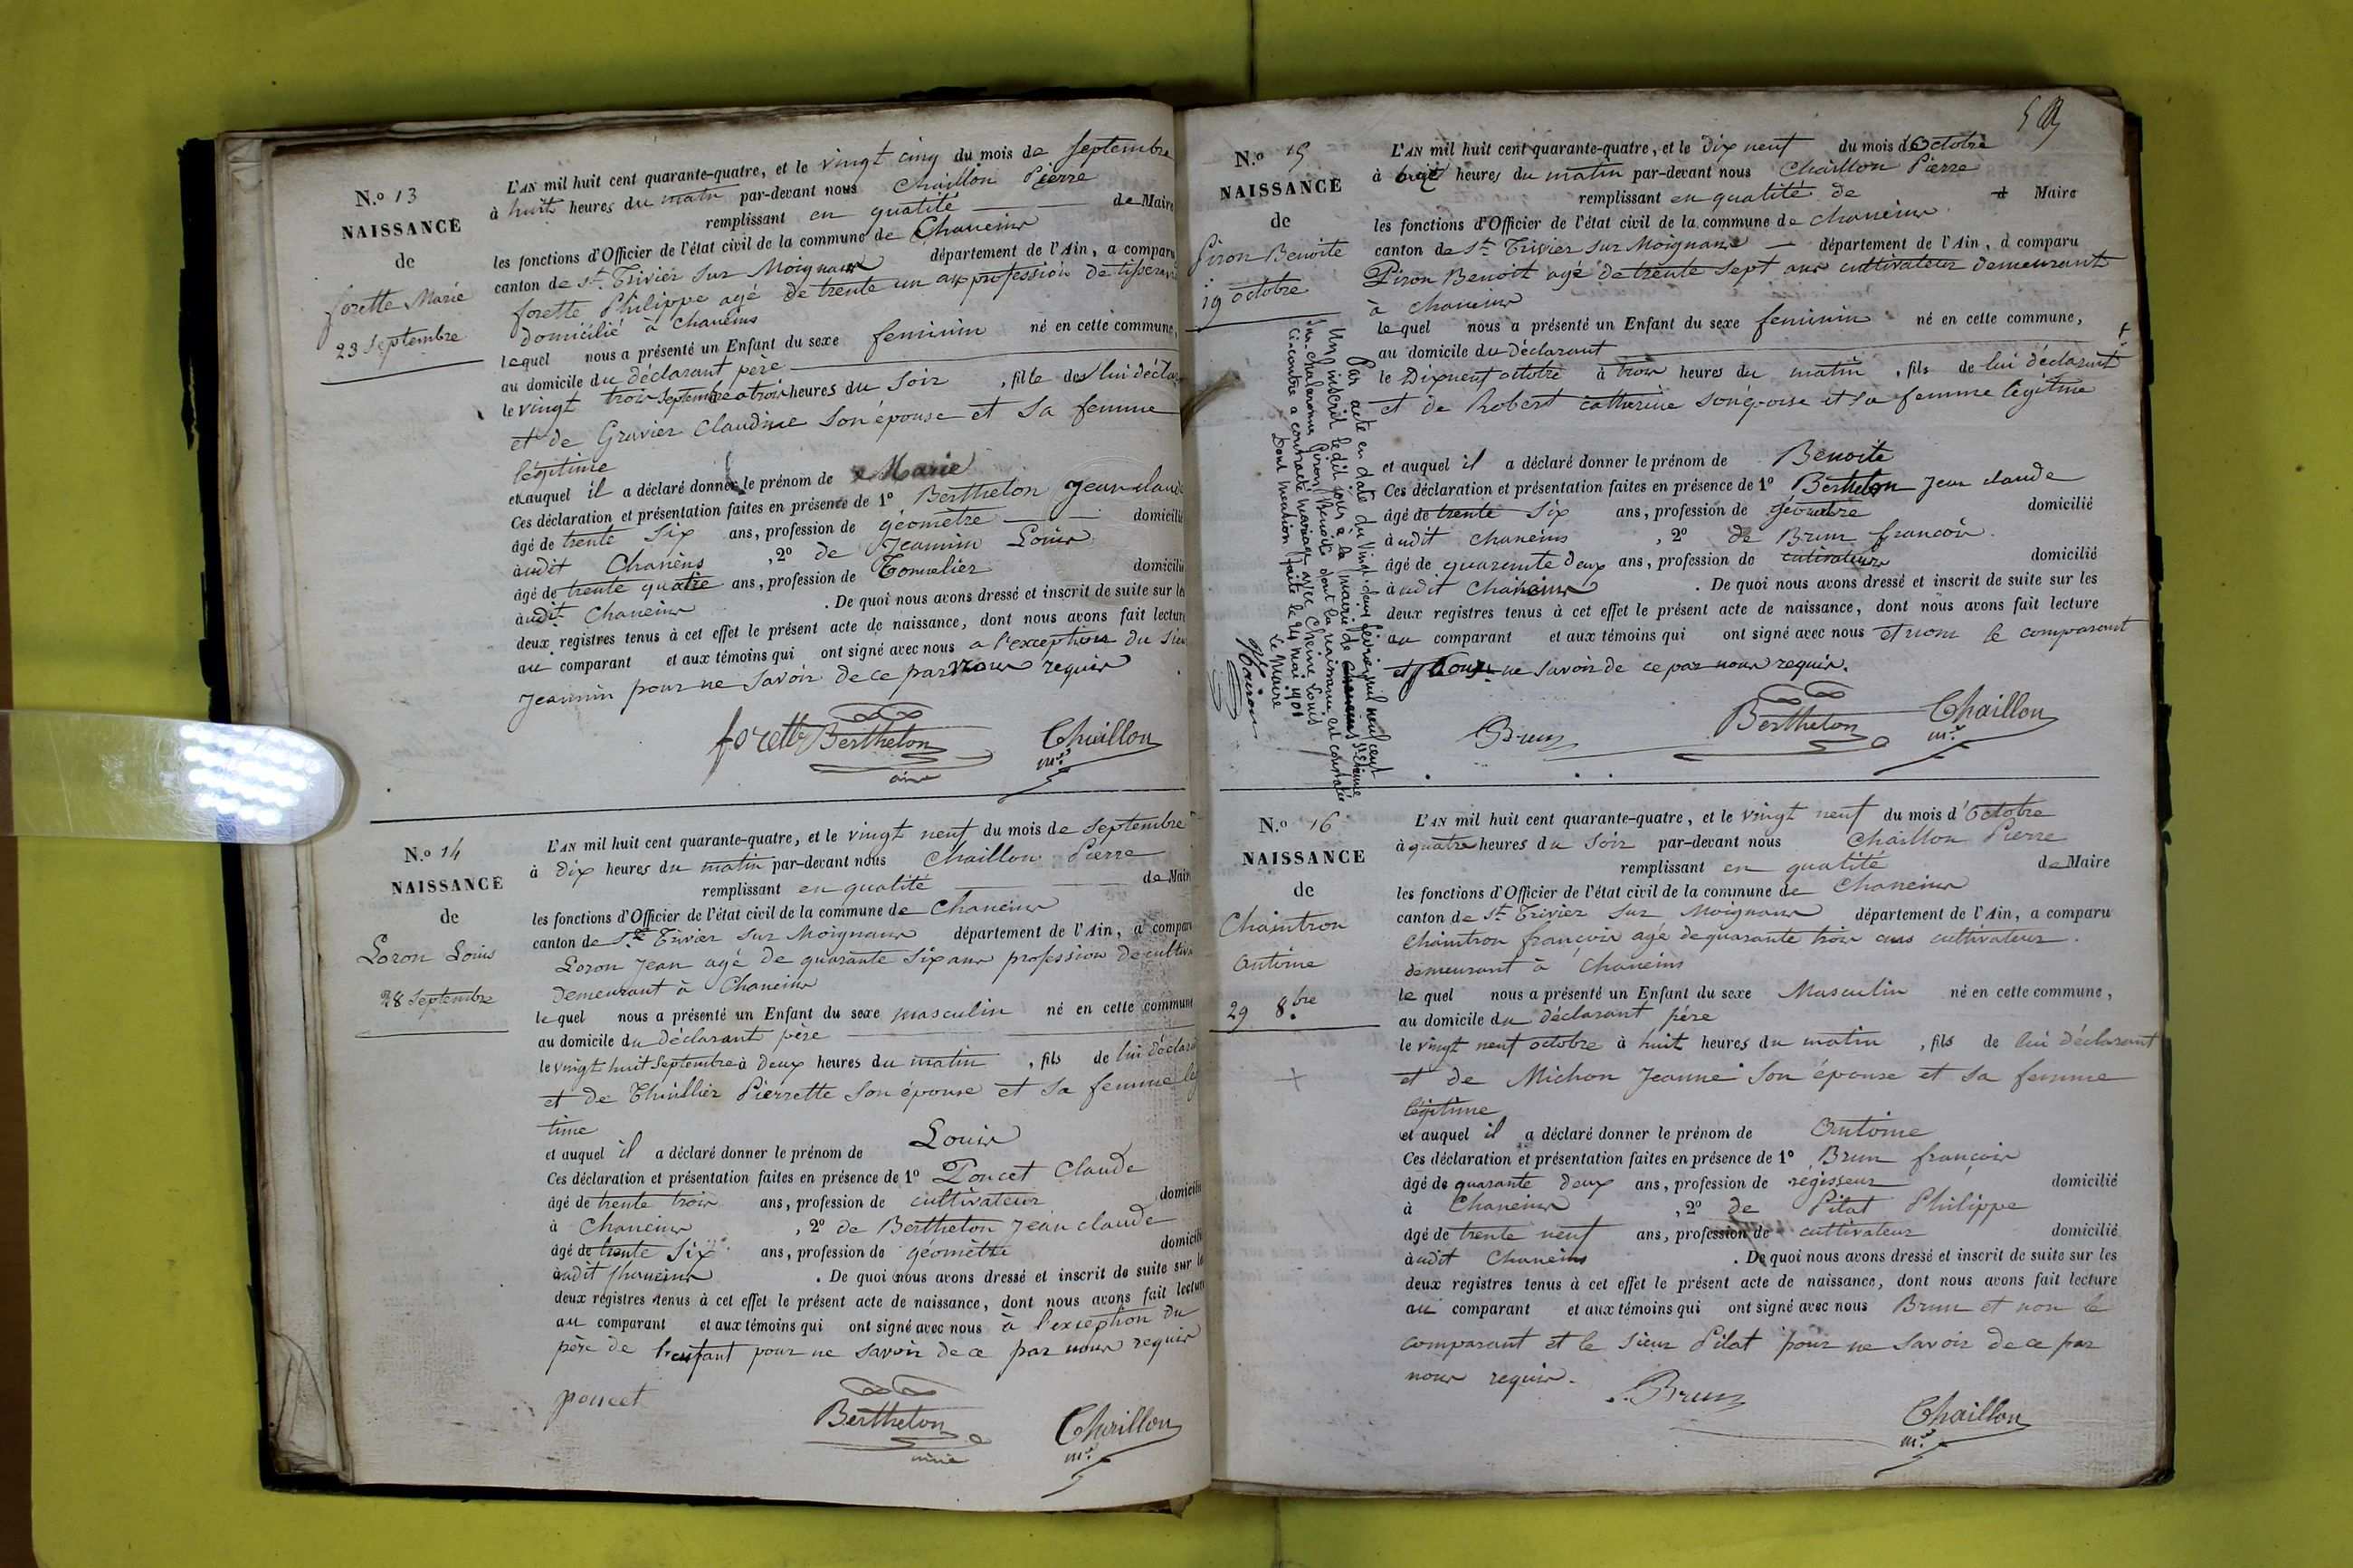 N.o 13
NAISSANCE
de
forette Marie
23 Septembre
L'AN mil huit cent quarante-quatre, et le vingt cinq du mois de Septembre
à huit heures du matin par-devant nous Chaillon Pierre
remplissant en qualité de Maire
les fonctions d'Officier de l'état civil de la commune de Chaneins
canton de St. Trivier sur Moignans département de l'Ain, a comparu
forette Philippe agé de trente un ans profession de tisserand
domicilié à Chaneins
lequel nous a présenté un Enfant du sexe feminin né en cette commune,
au domicile du déclarant père
le vingt trois Septembre a trois heures du soir, fille de lui déclar
et de Gravier Claudine son épouse et sa femme
légitime
et auquel il a déclaré donner le prénom de Marie
Ces déclaration et présentation faites en présence de 1º Berthelon Jean claude
âgé de trente Six ans, profession de géomètre domicilié
audit Chaneins, 2º de Jeannin Louis
âgé de trente quatre ans, profession de Tonnelier domicilié
audit Chaneins. De quoi nous avons dressé et inscrit de suite sur les
deux registres tenus à cet effet le présent acte de naissance, dont nous avons fait lecture
au comparant et aux témoins qui ont signé avec nous a l'exception du Sieur
Jeannin pour ne savoir de ce par nous requis
forette Berthelon Chaillon
mre
N.o 14
NAISSANCE
de
Loron Louis
28 Septembre
L'AN mil huit cent quarante-quatre, et le vingt neuf du mois de Septembre
à dix heures du matin par-devant nous Chaillon Pierre
remplissant en qualité de Maire
les fonctions d'Officier de l'état civil de la commune de Chaneins
canton de St. Trivier sur Moignans département de l'Ain, a comparu
Loron Jean agé de quarante six ans profession de cultiv
demeurant à Chaneins
lequel nous a présenté un Enfant du sexe masculin né en cette commune
au domicile du déclarant père
le vingt huit Septembre à deux heures du matin, fils de lui déclarant
et de Thivillier Pierrette son épouse et sa femme lég
time
et auquel il a déclaré donner le prénom de Louis
Ces déclaration et présentation faites en présence de 1º Poncet Claude
âgé de trente trois ans, profession de cultivateur domicilié
à Chaneins, 2º de Berthelon Jean claude
âgé de trente Six ans, profession de géomètre domicilié
audit Chaneins. De quoi nous avons dressé et inscrit de suite sur les
deux registres tenus à cet effet le présent acte de naissance, dont nous avons fait lecture
au comparant et aux témoins qui ont signé avec nous à l'exception du
père de l'enfant pour ne savoir de ce par nous requis
poncet Berthelon Chaillon
mre
N.o 15
NAISSANCE
de
Piron Benoite
19 octobre
Par acte en date du vingt-deux février mil neuf cent
un inscrit le dit jour à la mairie de St Etienne
sur Chalaronne Piron Benoite dont la naissance est constatée
ci-contre a contracté mariage avec Cheine Louis
Dont mention faite le 24 mai 1901
Le Maire
L'AN mil huit cent quarante-quatre, et le dix neuf du mois d'Octobre
à heures du matin par-devant nous Chaillon Pierre
remplissant en qualité de Maire
les fonctions d'Officier de l'état civil de la commune de Chaneins
canton de St. Trivier sur Moignans département de l'Ain, a comparu
Piron Benoit agé de trente sept ans cultivateur demeurant
à Chaneins
lequel nous a présenté un Enfant du sexe feminin né en cette commune,
au domicile du déclarant
le Dixneuf octobre à trois heures du matin, fils de lui déclarant
et de Robert catherine son épouse et sa femme légitime
et auquel il a déclaré donner le prénom de Benoite
Ces déclaration et présentation faites en présence de 1º Berthelon Jean claude
âgé de trente Six ans, profession de géomètre domicilié
audit chaneins, 2º de Brun francois
âgé de quarante deux ans, profession de cultivateur domicilié
audit Chaneins. De quoi nous avons dressé et inscrit de suite sur les
deux registres tenus à cet effet le présent acte de naissance, dont nous avons fait lecture
au comparant et aux témoins qui ont signé avec nous et non le comparant
pour ne savoir de ce par nous requis.
Brun Berthelon Chaillon
mre
N.o 16
NAISSANCE
de
Chaintron
Antoine
29 8.bre
L'AN mil huit cent quarante-quatre, et le vingt neuf du mois d'Octobre
à quatre heures du soir par-devant nous Chaillon Pierre
remplissant en qualité de Maire
les fonctions d'Officier de l'état civil de la commune de Chaneins
canton de St. Trivier sur Moignans département de l'Ain, a comparu
Chaintron françois agé de quarante trois ans cultivateur.
demeurant à Chaneins
lequel nous a présenté un Enfant du sexe Masculin né en cette commune,
au domicile du déclarant père
le vingt neuf octobre à huit heures du matin, fils de lui déclarant
et de Michon Jeanne son épouse et sa femme
légitime
et auquel il a déclaré donner le prénom de Antoine
Ces déclaration et présentation faites en présence de 1º Brun françois
âgé de quarante deux ans, profession de régisseur domicilié
à Chaneins, 2º de Pilat Philippe
âgé de trente neuf ans, profession de cultivateur domicilié
audit Chaneins. De quoi nous avons dressé et inscrit de suite sur les
deux registres tenus à cet effet le présent acte de naissance, dont nous avons fait lecture
au comparant et aux témoins qui ont signé avec nous Brun et non le
comparant et le Sieur Pilat pour ne savoir de ce par
nous requis.
Brun Chaillon
mre